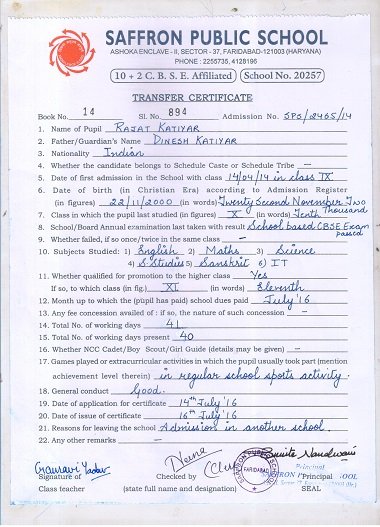 SAFFRON PUBLIC SCHOOL
ASHOKA ENCLAVE - II, SECTOR - 37, FARIDABAD-121003 (HARYANA)
PHONE : 2255735, 4128195
10 + 2 C. B. S. E. Affiliated School No. 20257
TRANSFER CERTIFICATE
Book No. 14 Sl. No. 894 Admission No. SPS/2465/14
1. Name of Pupil RAJAT KATIYAR
2. Father/Guardian's Name DINESH KATIYAR
3. Nationality Indian
4. Whether the candidate belongs to Schedule Caste or Schedule Tribe –
5. Date of first admission in the School with class 14/04/14 in class IX
6. Date of birth (in Christian Era) according to Admission Register
(in figures) 22/11/2000 (in words) Twenty Second November Two Thousand
7. Class in which the pupil last studied (in figures) X (in words) Tenth
8. School/Board Annual examination last taken with result School based CBSE Exam passed
9. Whether failed, if so once/twice in the same class –
10. Subjects Studied: 1) English 2) Maths 3) Science
4) S.Studies 5) Sanskrit 6) IT
11. Whether qualified for promotion to the higher class Yes
If so, to which class (in fig.) XI (in words) Eleventh
12. Month up to which the (pupil has paid) school dues paid July '16
13. Any fee concession availed of : if so, the nature of such concession –
14. Total No. of working days 41
15. Total No. of working days present 40
16. Whether NCC Cadet/Boy Scout/Girl Guide (details may be given) –
17. Games played or extracurricular activities in which the pupil usually took part (mention
achievement level therein) in regular school sports activity.
18. General conduct Good.
19. Date of application for certificate 14th July '16
20. Date of issue of certificate 16th July '16
21. Reasons for leaving the school Admission in another school.
22. Any other remarks –
Gauravi Yadav
Signature of Checked by Principal
Class teacher (state full name and designation) SEAL
SAFFRON PUBLIC SCHOOL
FARIDABAD
Principal